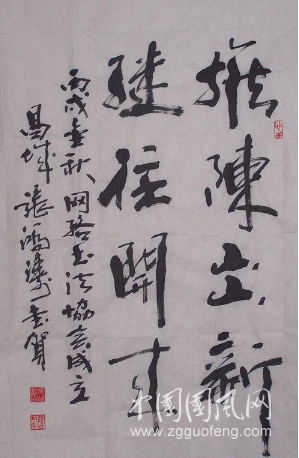 推陳出新
继往開来
丙戌金秋网络书法協会成立
昌城張鴻书賀
中国国风网
www.zgguofeng.com